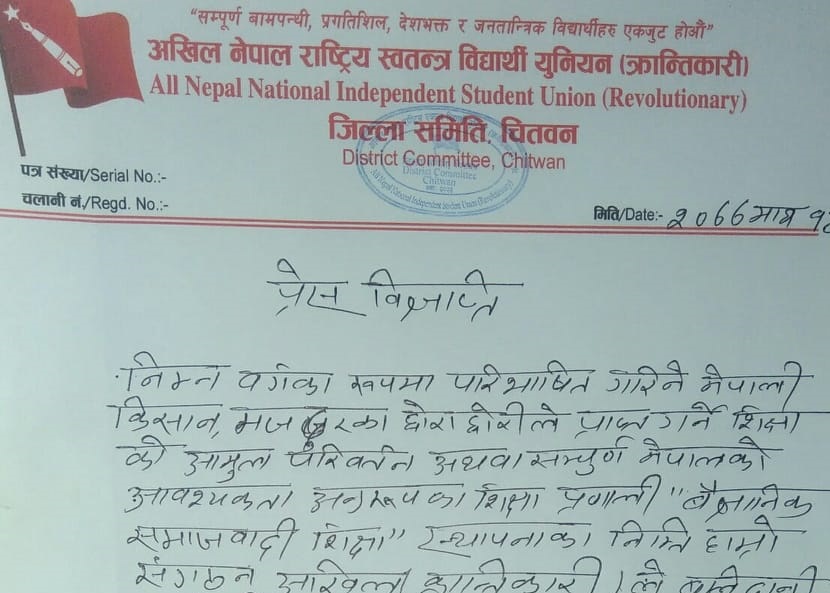 “सम्पूर्ण बामपन्थी, प्रगतिशिल, देशभक्त र जनतान्त्रिक विद्यार्थीहरु एकजुट होऔं”
अखिल नेपाल राष्ट्रिय स्वतन्त्र विद्यार्थी युनियन (क्रान्तिकारी)
All Nepal National Independent Student Union (Revolutionary)
जिल्ला समिति, चितवन
District Committee, Chitwan
District Committee
Chitwan
All Nepal National Independent Student Union (Revolutionary)
पत्र संख्या/Serial No.:-
चलानी नं./Regd. No.:-
मिति/Date:- २०७७ माघ
प्रेस विज्ञप्ति
निम्न वर्गका रूपमा परिभाषित गरिने नेपाली
किसान, मजदुरका छोरा छोरीले प्राप्त गर्ने शिक्षा
को आमुल परिवर्तन अथवा सम्पुर्ण नेपालको
आवश्यकता अनुरूपका शिक्षा प्रणाली "बैज्ञानिक
समाजवादी शिक्षा" स्थापनाका निम्ति हाम्रो
संगठन अखिल (क्रान्तिकारी) ले